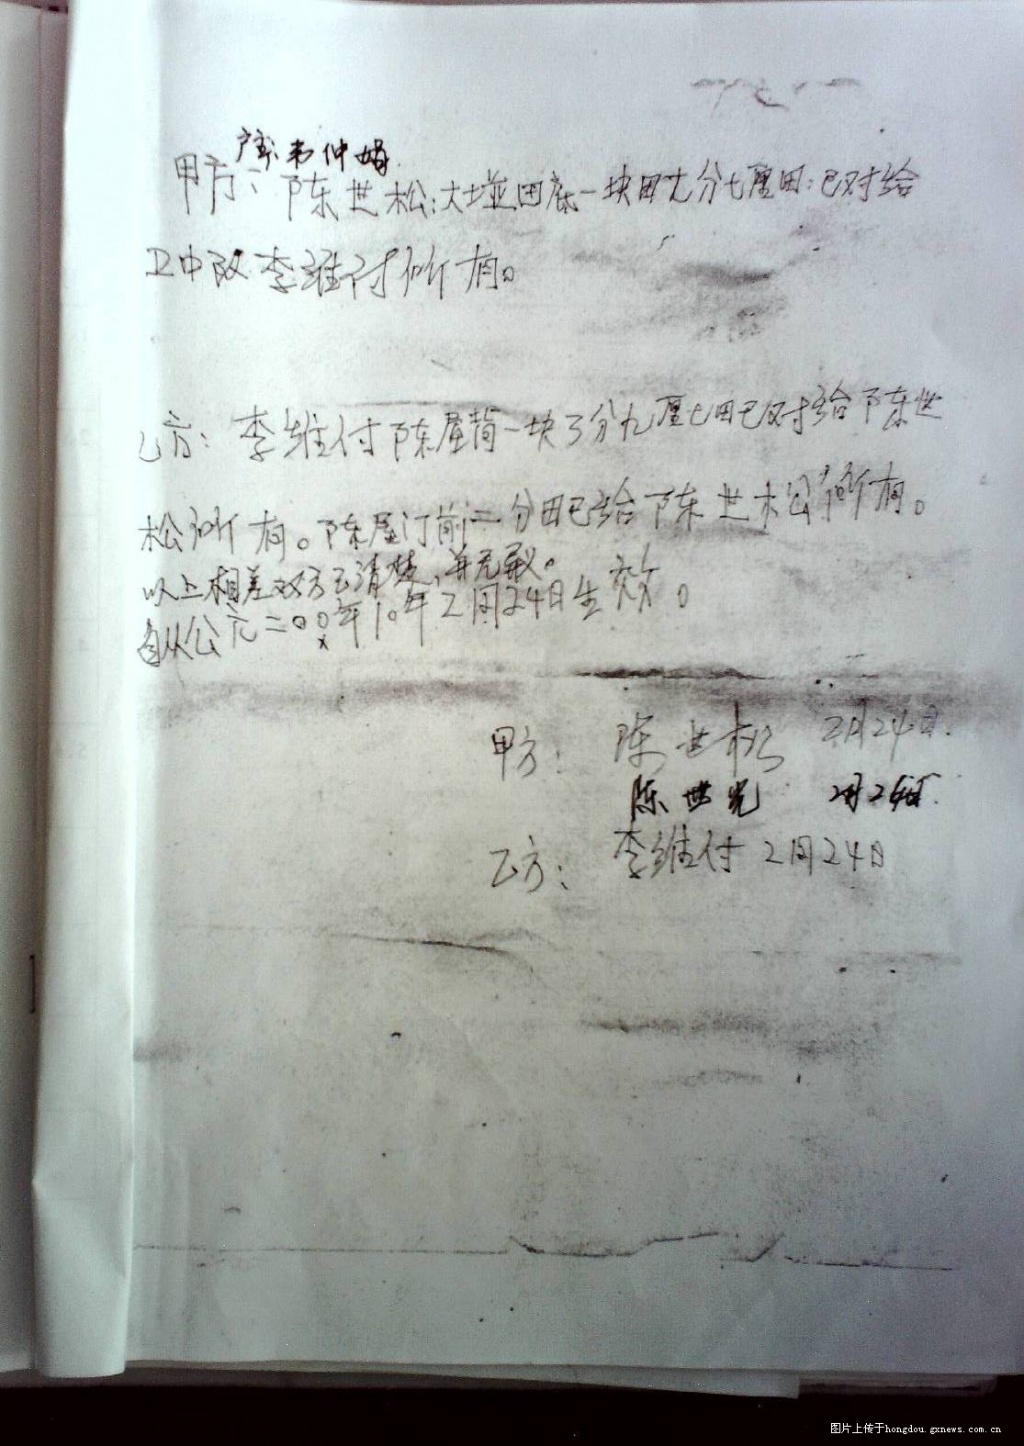 韦仲娟
甲方：陈世松：大垭田底一块田尢分七厘田：已对给
卫中队李维付所有。
乙方：李维付陈屋背一块3分九厘七田已对给陈世
松所有。陈屋门前二分田已给陈世松所有。
以上相差双方已清楚，并无争议。
自从公元二00年10年2月24日生效。
甲方：陈世松 2月24日.
陈世光 2月24日.
乙方：李维付 2月24日
图片上传于hongdou.gxnews.com.cn